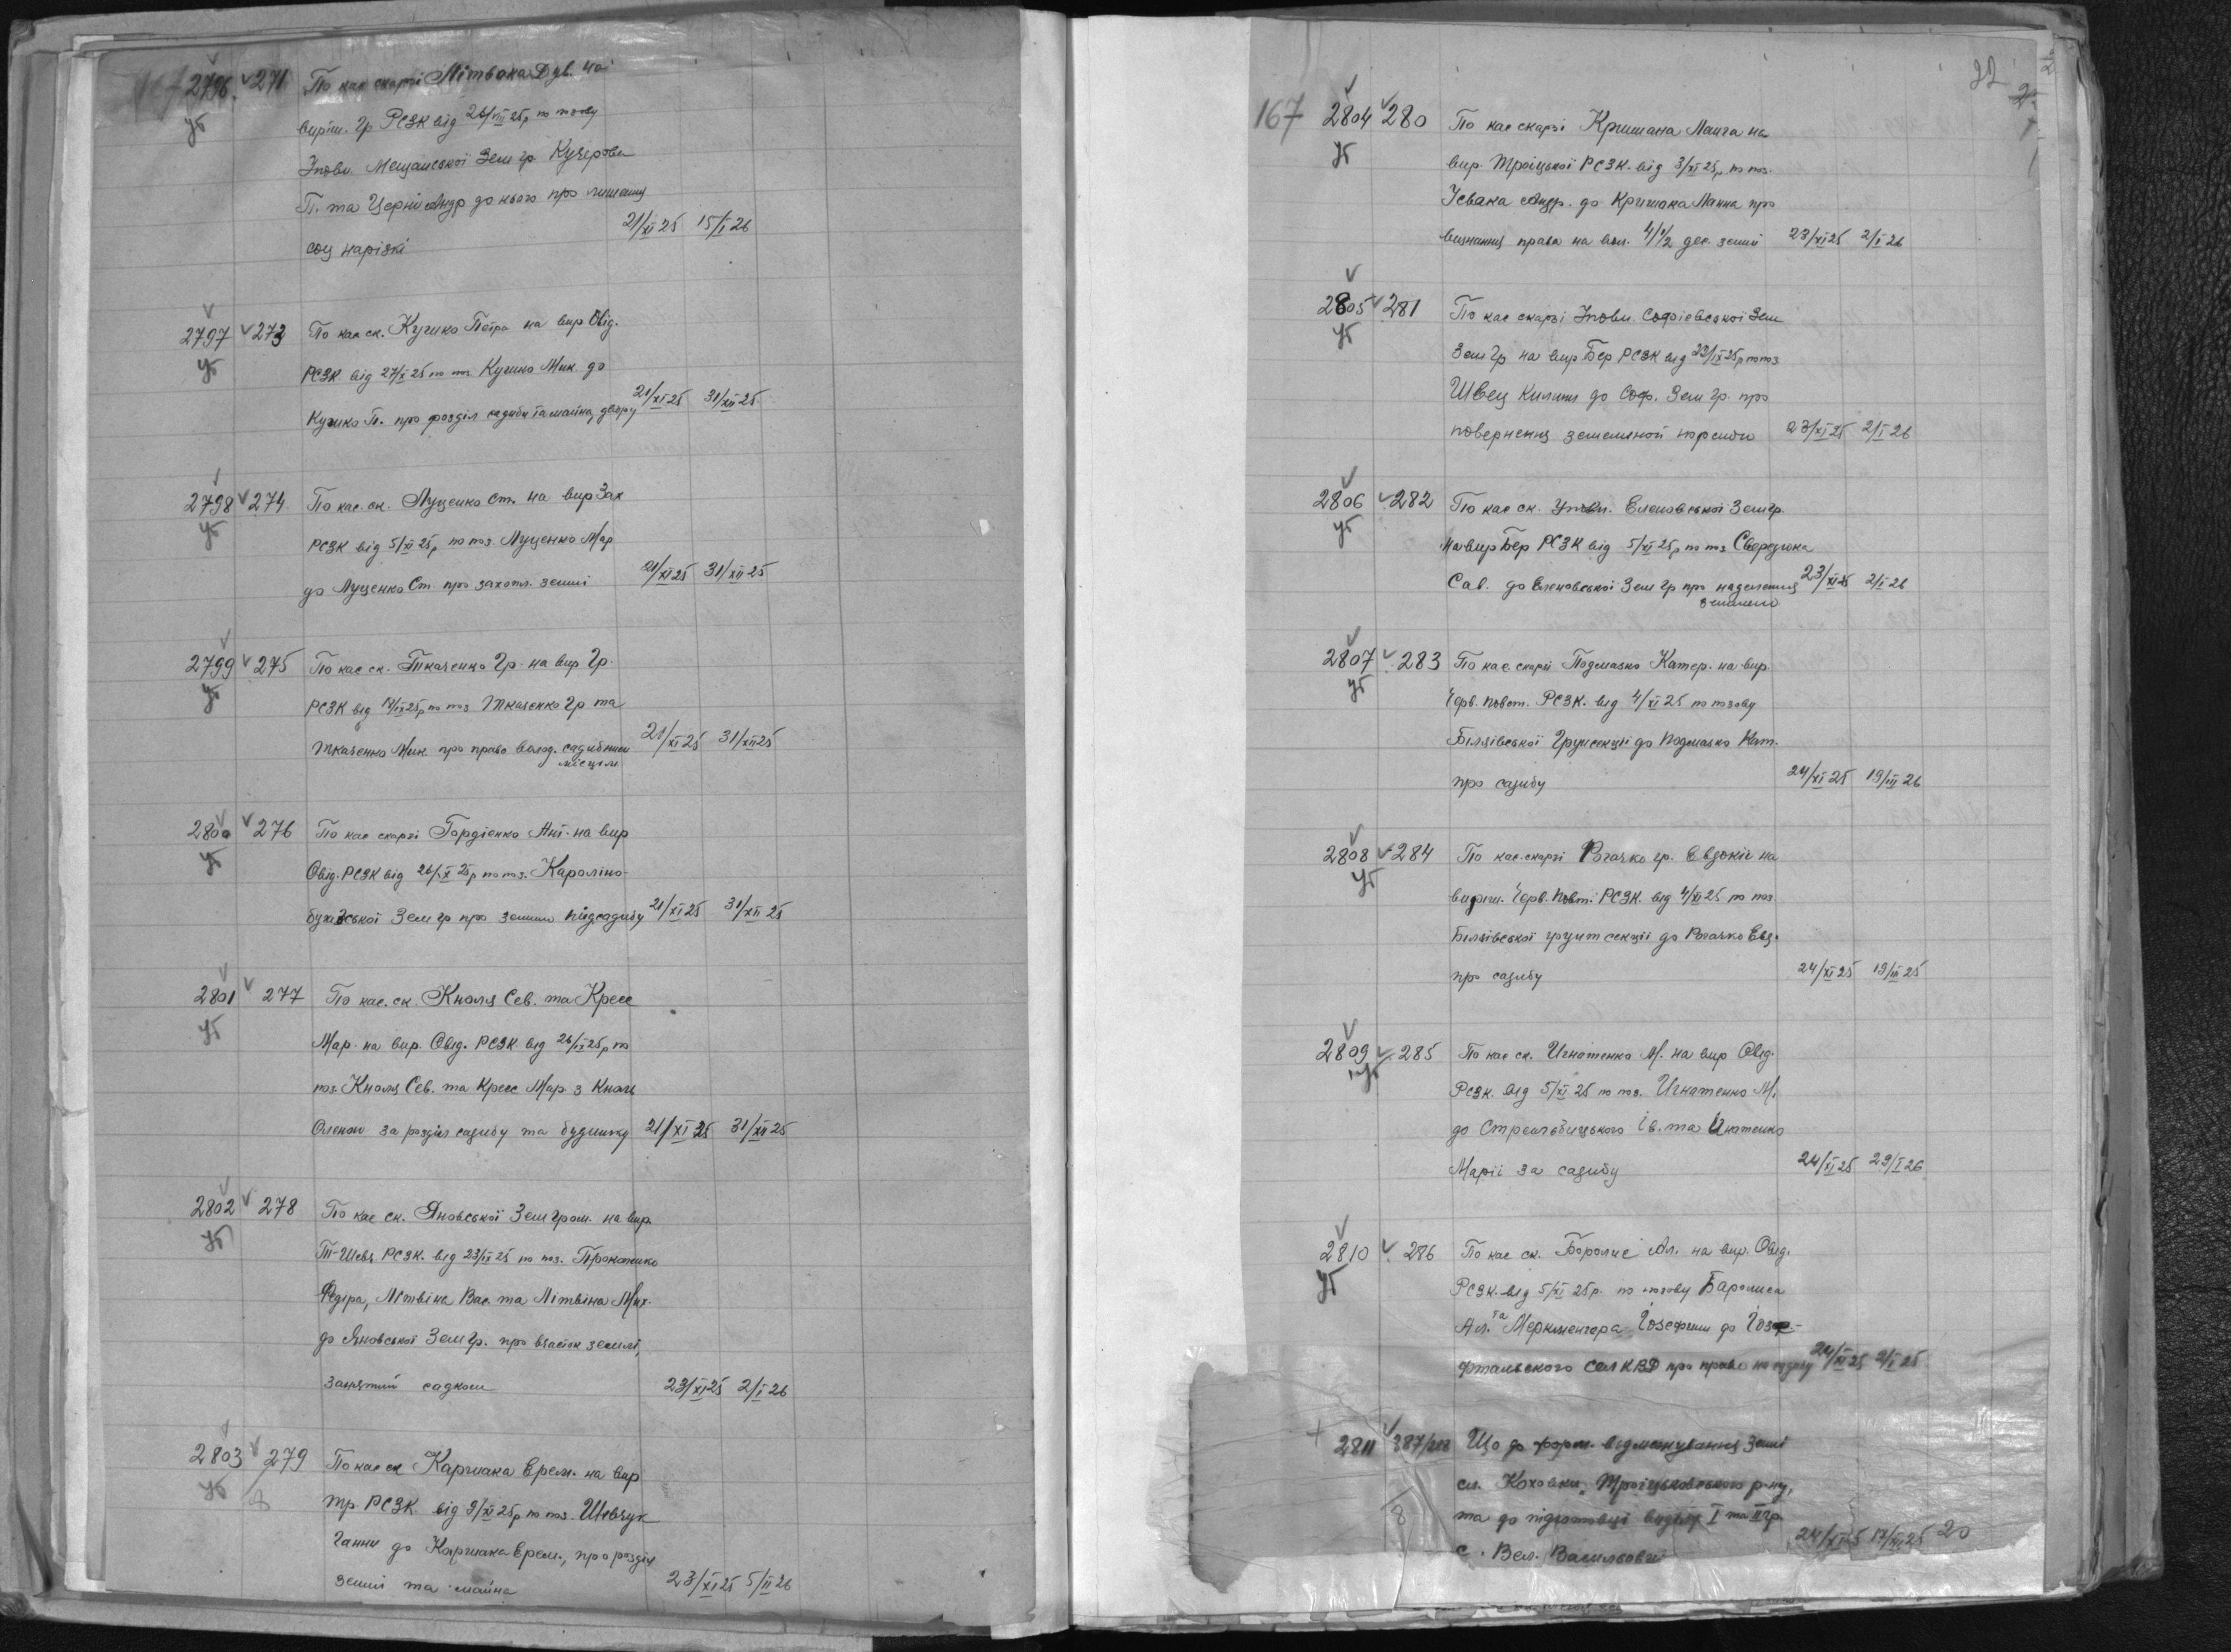 167 2796 271 По кас скарзі Літвака Дув. на
уб виріш. Гр РСЗК від 26/VIII 25р по позву
Уповн. Мещанської Зем гр Кучерова
П. та Церні Андр до нього про лишення
соц нарізкі 21/XI 25 15/I 26
2797 273 По кас ск. Кучико Петра на вир Овід.
уб РСЗК від 27/X 25 по поз Кучико Мик. до
Кучико П. про розділ садиби та майна, двору 21/XI 25 31/XII 25
2798 274 По кас. ск. Луценко Ст. на вир Зах
уб РСЗК від 5/XI 25р по поз. Луценко Мар
до Луценко Ст. про захопл. землі 21/XI 25 31/XII 25
2799 275 По кас ск. Ткаченко Гр. на вир Гр.
уб РСЗК від 17/IX 25р по поз Ткаченко Гр та
Ткаченко Мик. про право волод. садибним 21/XI 25 31/XII 25
місцем
2800 276 По кас скарзі Гордієнко Ант. на вир
уб Овід. РСЗК від 26/X 25р по поз. Кароліно-
бугазської Зем гр про землю під садибу 21/XI 25 31/XII 25
2801 277 По кас. ск. Кноля Сев. та Кресс
уб Мар. на вир. Овід. РСЗК від 26/IX 25р по
поз. Кноля Сев. та Кресс Мар з Кноль
Оленою за розділ садибу та будинку 21/XI 25 31/XII 25
2802 278 По кас ск. Яновської Зем гром. на вир.
уб Т-Шевч РСЗК. від 23/IX 25 по поз. Прокопенко
Федіра, Літвіна Вас. та Літвіна Мих.
до Яновської Зем гр. про участок землі,
занятий садком 23/XI 25 2/I 26
2803 279 По кас ск Каргиака Ерем. на вир
уб 8 Тр. РСЗК від 9/XI 25р по поз. Шевчук
Ганни до Каргиака Ерем., про розділ
землі та майна 23/XI 25 5/II 26
22
167 2804 280 По кас скарзі Кришана Манга на
уб вир. Троіцької РСЗК. від 3/XI 25р по поз.
Усвака Андр. до Кришана Манна про
визнання права на вол. 4 1/2 дес. землі 23/XI 25 2/I 26
2805 281 По кас скарзі Уповн. Софієвської Зем
уб Зем Гр на вир Бер РСЗК від 29/IX 25р по поз
Швец Килини до Соф. Зем Гр. про
повернення земельной нормы 23/XI 25 2/I 26
2806 282 По кас ск. Уповн. Еленовської Зем гр.
уб на вир Бер РСЗК від 5/XI 25р по поз Свередюка
Сав. до Еленовської Зем гр про наделення 23/XI 25 2/I 26
землею
2807 283 По кас. скарзі Подмазко Катер. на вир.
уб Черв. Повст. РСЗК. від 4/XI 25 по позову
Біляівської Грунсекції до Подмазко Кат.
про садибу 24/XI 25 19/III 26
2808 284 По кас. скарзі Рогачко гр. Евдокіг на
уб виріш. Черв. Повст. РСЗК. від 4/XI 25 по поз
Біляівської грунт секції до Рогачко Евд.
про садибу 24/XI 25 19/III 25
2809 285 По кас ск. Игнатенко М. на вир Овід.
уб РСЗК. від 5/XI 25 по поз. Игнатенко М.
до Стрельбицького Ів. та Игнатенко
Марії за садибу 24/XI 25 29/I 26
2810 286 По кас ск. Боролис Ал. на вир. Овід.
уб РСЗК. від 5/XI 25р. по позову Баролиса
Ал. та Меркменгера Йозефини до Йозе-
фтальского сел КВД про право на садибу 24/XI 25 2/I 25
+ 2811 287/288 Що до форм. відмежування Землі
сл. Коховки, Троіцьковського р-ну,
8 та до підготовці виділу I та II гр.
с. Вел. Васильовці 24/XI 25 17/XII 25 20